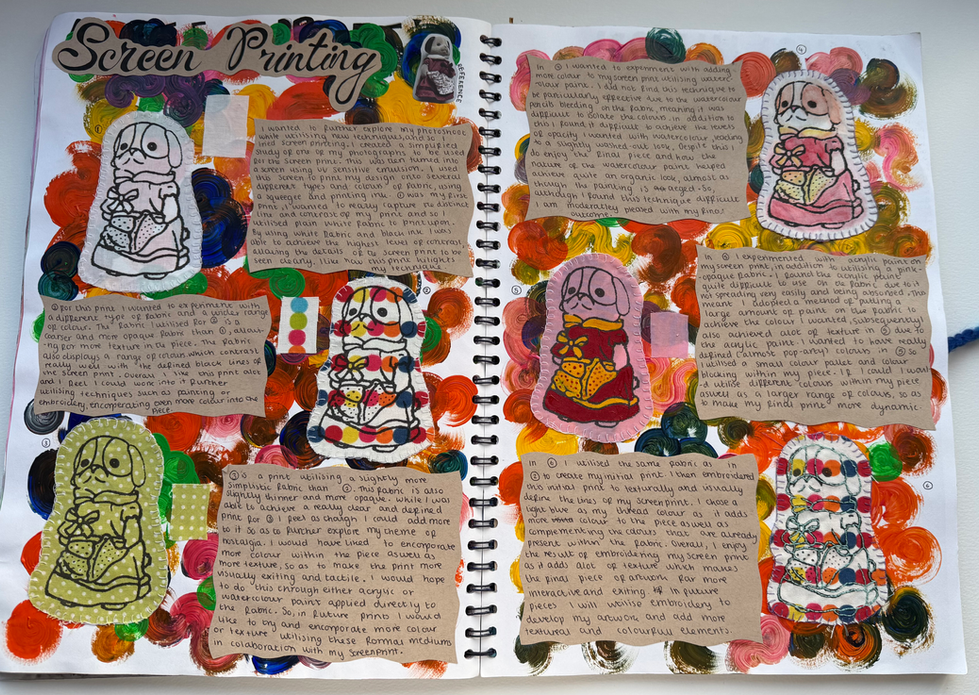 Screen Printing
REFERENCE
①
I wanted to further explore my photoshoot
while utilising new techniques, and so I
tried screen printing. I created a simplified
study of one of my photographs, to be used
for the screen print. This was then turned into
a screen using UV sensitive emulsion. I used
this screen to print my design onto several
different types and colours of fabric, using
a squeegee and printing ink. ① was my first
print, I wanted to really capture the detail,
line and contrast of my print and so I
utilised plain white fabric to print upon.
By using white fabric and black ink I was
able to achieve the highest level of contrast,
allowing the details of the screen print to be
seen clearly. I like how this print highlights
my technique.
②
② For this print I wanted to experiment with
a different type of fabric and a wider range
of colour. The fabric I utilised for ② is a
thicker and more opaque fabric than ①, allow-
ing for more texture in the piece. The fabric
also displays a range of colour which contrasts
really well with the defined black lines of
the screen print. Overall I like this print alot
and I feel I could work into it further
utilising techniques such as painting or
embroidery, encorporating even more colour into the
piece
③
③ is a print utilising a slightly more
simplistic fabric than ②, this fabric is also
slightly thinner and more opaque. While I was
able to achieve a really clear and defined
print for ③ I feel as though I could add more
to it so as to further explore my theme of
nostalgia. I would have liked to encorporate
more colour within the piece aswell as
more texture, so as to make the print more
visually exiting and tactile. I would hope
to do this through either acrylic or
watercolour paint applied directly to
the fabric. So, in future prints I would
like to try and encorporate more colour
or texture, utilising these formal mediums
in colaboration with my screenprint.
④
In ④ I wanted to experiment with adding
more colour to my screen print utilising water-
colour paint. I did not find this technique to
be particularly effective due to the watercolour
pencils bleeding on the fabric, meaning it was
difficult to isolate the colours. In addition to
this I found it difficult to achieve the levels
of opacity I wanted with watercolour, leading
to a slightly washed-out look. Despite this I
do enjoy the final piece and how the
nature of the watercolour paint helped
achieve quite an organic look, almost as
though the painting is aged. So,
although I found this technique difficult
I am moderatley pleased with my final
outcome.
⑤
In ⑤ I experimented with acrylic paint on
my screen print, in addition to utilising a pink
opaque fabric. I found the acrylic paint to be
quite difficult to use on the fabric, due to it
not spreading very easily and being absorbed. This
meant I adopted a method of putting a
large amount of paint on the fabric to
achieve the colour I wanted, subsequently I
also achieved alot of texture in ⑤ due to
the acrylic paint. I wanted to have really
defined (almost pop-arty) colours in ⑤ so I
utilised a small colour pallet and colour
blocking within my piece. If I could I would
utilise different colours within my piece
aswell as a larger range of colours, so as
to make my final print more dynamic.
⑥
In ⑥ I utilised the same fabric as in
② to create my initial print. I then embroidered
my initial print to texturally and visually
define the lines of my screenprint. I chose a
light blue as my thread colour as it adds
more colour to the piece aswell as
complementing the colours that are already
present within the fabric. Overall, I enjoy
the result of embroidering my screen print
as it adds alot of texture which makes
the final piece of artwork far more
interactive and exiting. In future
pieces I will utilise embroidery to
develop my artwork and add more
textural and colourfull elements.